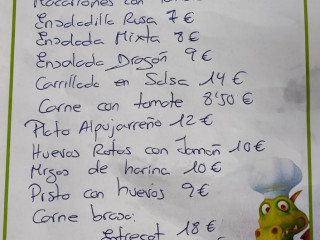 Macarrones con
Ensaladilla Rusa 7€
Ensalada Mixta 8€
Ensalada Dragón 9€
Carrillada en Salsa 14€
Carne con tomate 8'50€
Plato Alpujarreño 12€
Huevos Rotos con Jamón 10€
Migas de harina 10€
Pisto con huevos 9€
Carne brasa:
Entrecot 18€